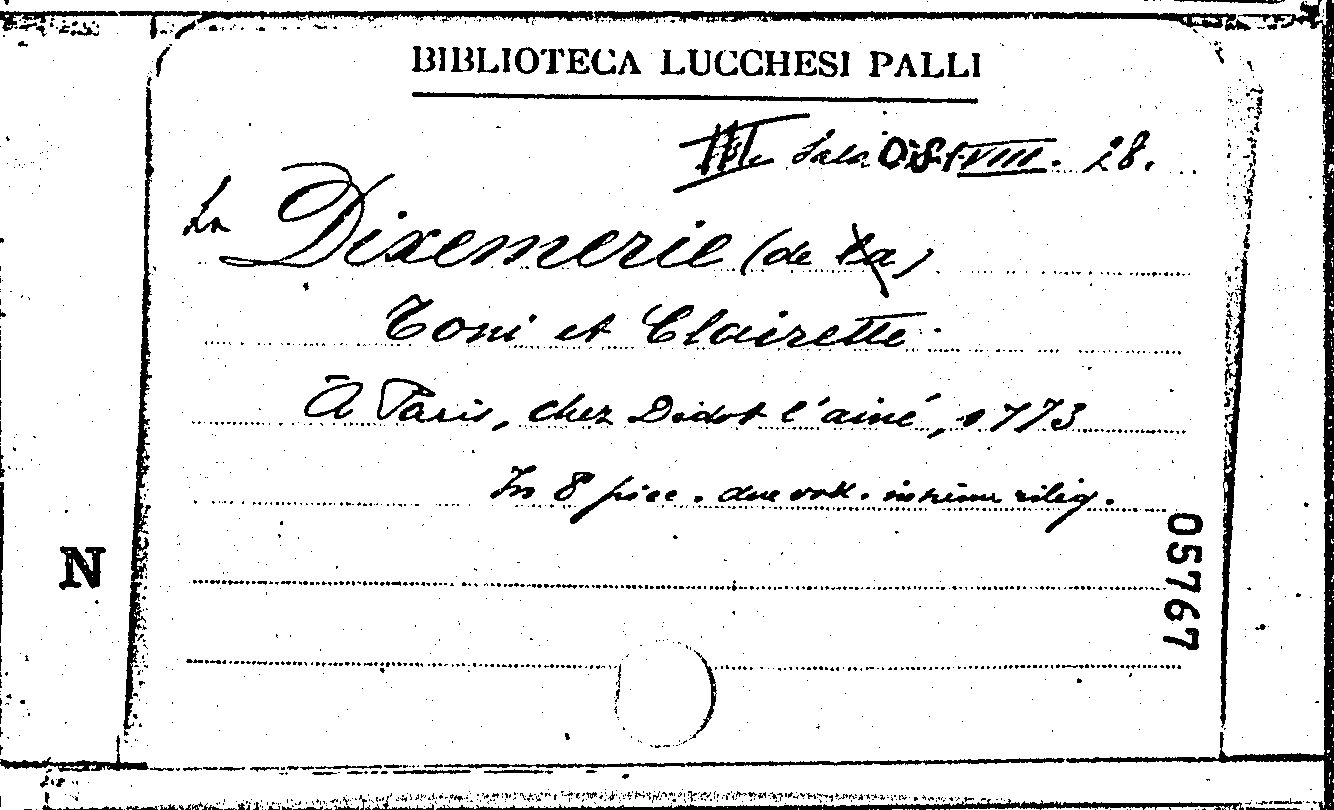 BIBLIOTECA LUCCHESI PALLI
Sala VIII. 28.
La Dixemerie (de la)
Toni et Clairette.
A Paris, chez Didot l'ainé, 1773
In 8° picc. due voll. insieme rileg.
N
05767